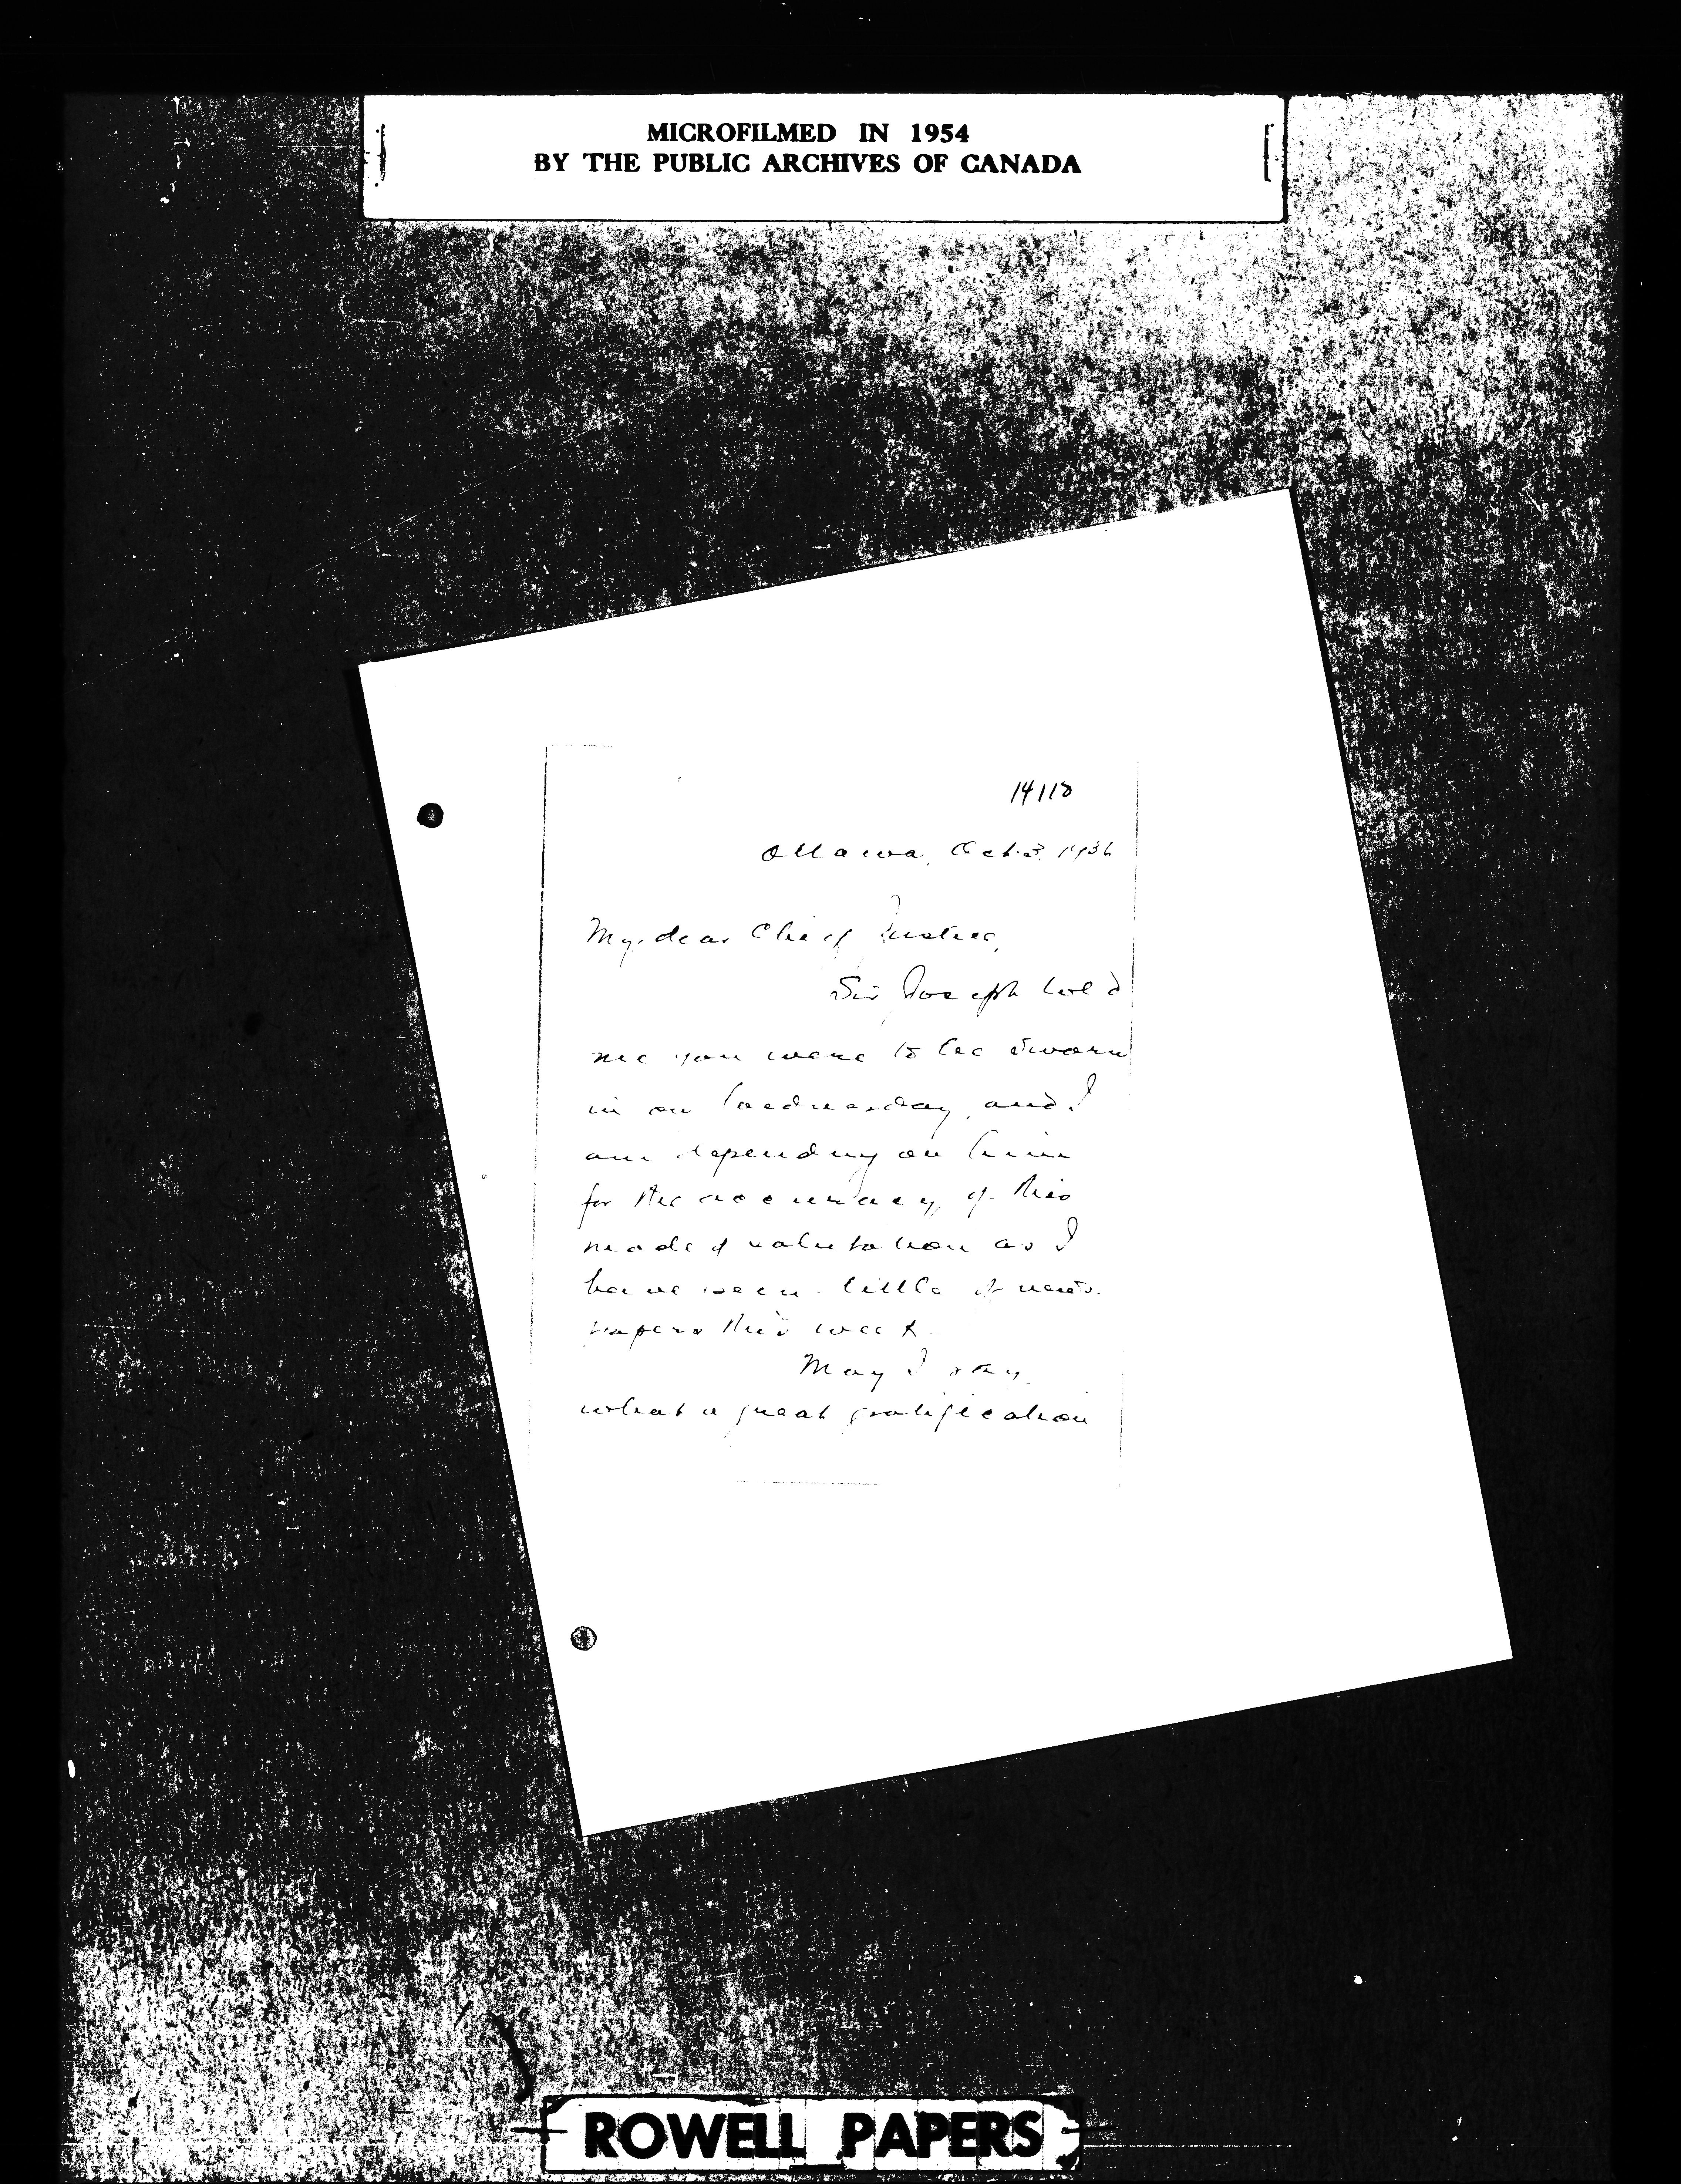 MICROFILMED IN 1954
BY THE PUBLIC ARCHIVES OF CANADA
14118
Ottawa, Oct. 3. 1936
My dear Chief Justice,
Sir Joseph told
me you were to be sworn
in on Wednesday, and I
am depending on him
for the accuracy of this
mode of salutation as I
have seen little of news-
papers this week.
May I say
what a great gratification
ROWELL PAPERS